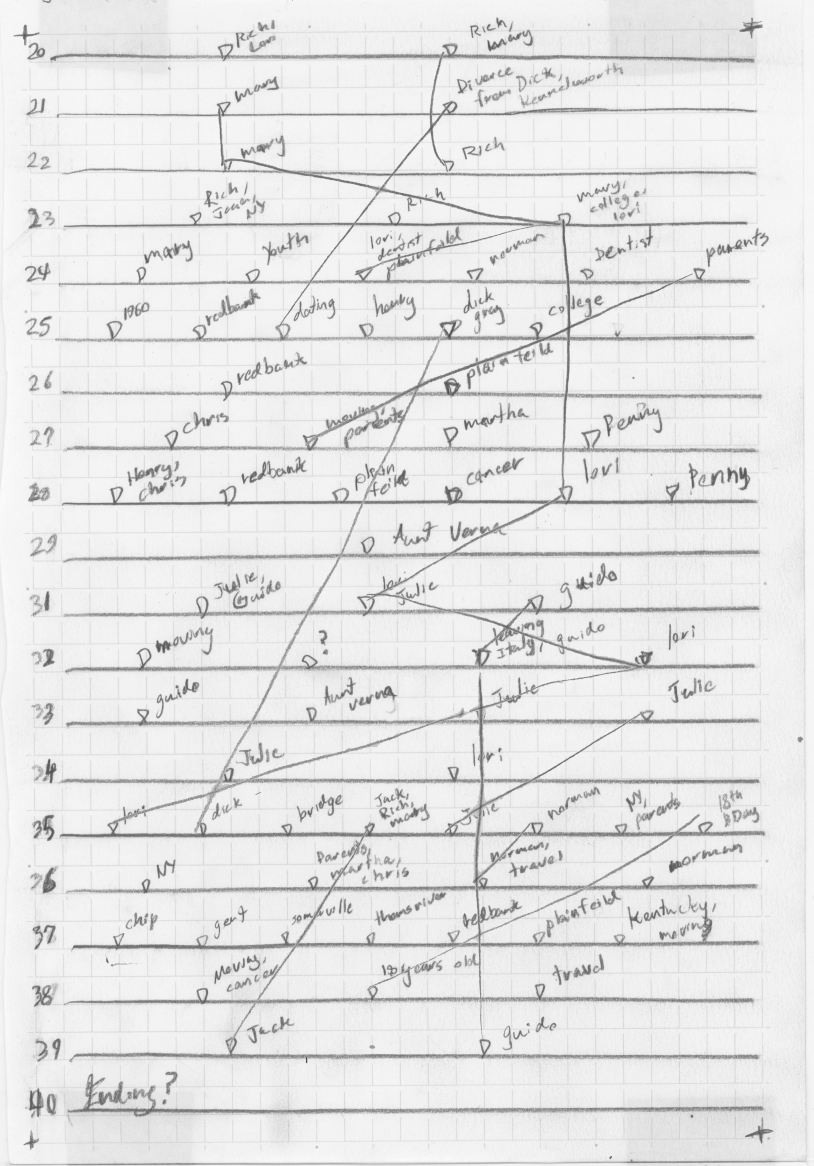 Rich,
Lori
Rich,
Mary
20
mary
Divorce
from Dick,
21
mary
Rich
22
Rich,
NY
Rich
mary,
college,
lori
23
mary
Youth
lori,
dentist
plainfeild
norman
Dentist
parents
24
1960
redbank
dating
henry
dick
gray
college
25
redbank
plainfeild
26
chris
moving,
parents
martha
Penny
27
Henry,
chris
redbank
plain
feild
cancer
lori
Penny
28
Aunt Verna
29
Julie,
Guido
lori
Julie
guido
31
moving
?
leaving
Italy, guido
lori
32
guido
Aunt
verna
Julie
Julie
33
Julie
lori
34
lori
dick
bridge
Jack,
Rich,
mary
Julie
norman
NY,
parents
18th
BDay
35
NY
Parents,
martha,
chris
norman,
travel
norman
36
chip
gert
somerville
redbank
plainfeild
Kentucky,
moving
37
Moving,
cancer
18 years old
travel
38
Jack
guido
39
Ending?
40